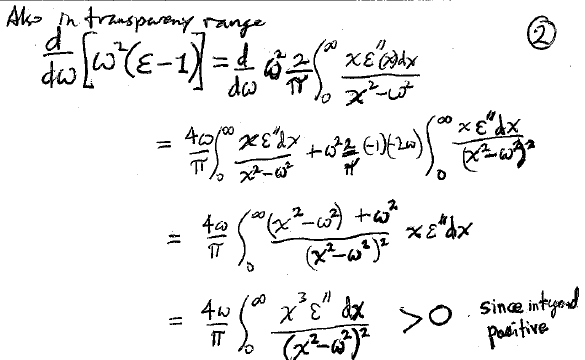 Also in transparency range
②
d/dω [ω²(ε-1)] = d/dω ω² 2/π ∫₀^∞ xε″(x)dx / x²-ω²
= 4ω/π ∫₀^∞ xε″dx / x²-ω² + ω² 2/π (-1)(-2ω) ∫₀^∞ xε″dx / (x²-ω²)²
= 4ω/π ∫₀^∞ (x²-ω²)+ω² / (x²-ω²)² xε″dx
= 4ω/π ∫₀^∞ x³ε″dx / (x²-ω²)² > 0 . since integrand
positive